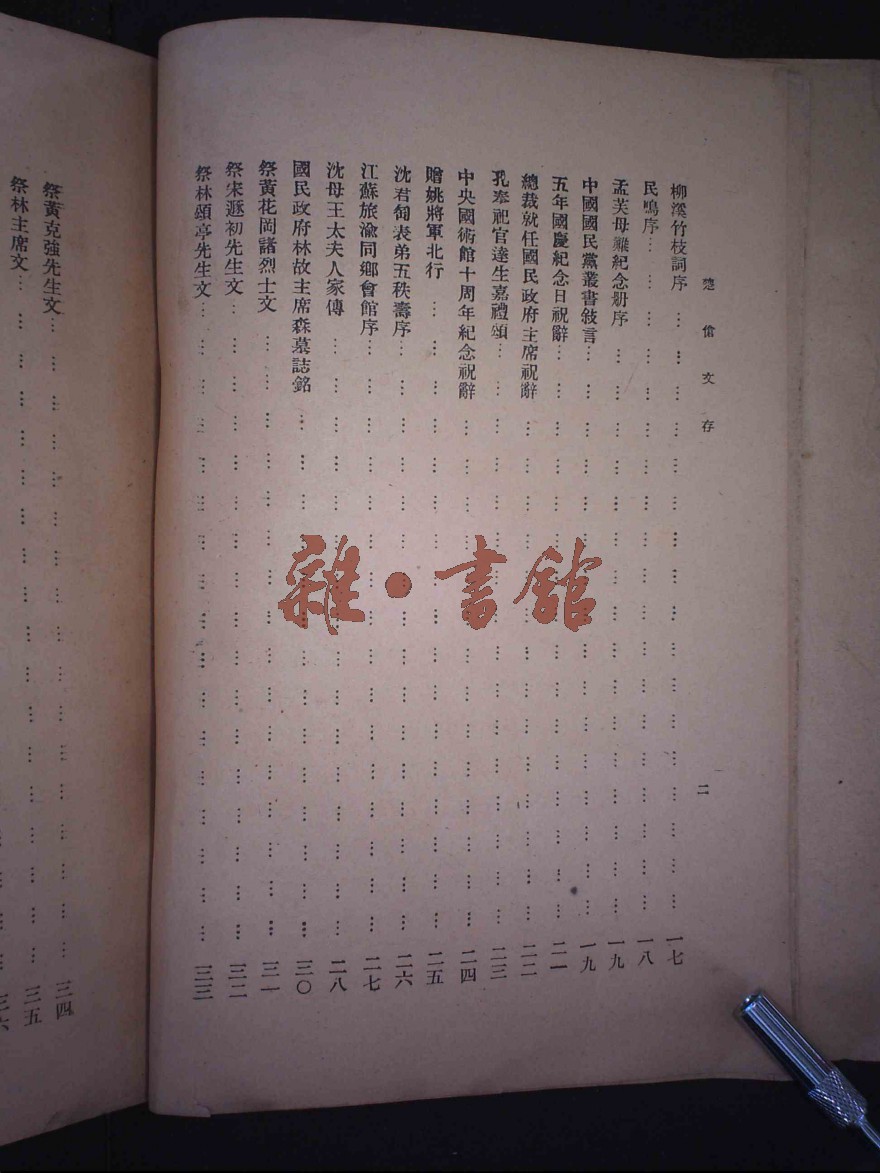 楚傖文存
二
柳溪竹枝詞序………一七
民鳴序………一八
孟芙母難紀念册序………一九
中國國民黨叢書敍言………一九
五年國慶紀念日祝辭………二一
總裁就任國民政府主席祝辭………二二
孔奉祀官達生嘉禮頌………二三
中央國術館十周年紀念祝辭………二四
贈姚將軍北行………二五
沈君匋表弟五秩壽序………二六
江蘇旅渝同鄉會館序………二七
沈母王太夫人家傳………二八
國民政府林故主席森墓誌銘………三〇
祭黃花岡諸烈士文………三一
祭宋遯初先生文………三二
祭林頌亭先生文………三三
祭黃克強先生文………三四
祭林主席文………三五
三六
雜·書館